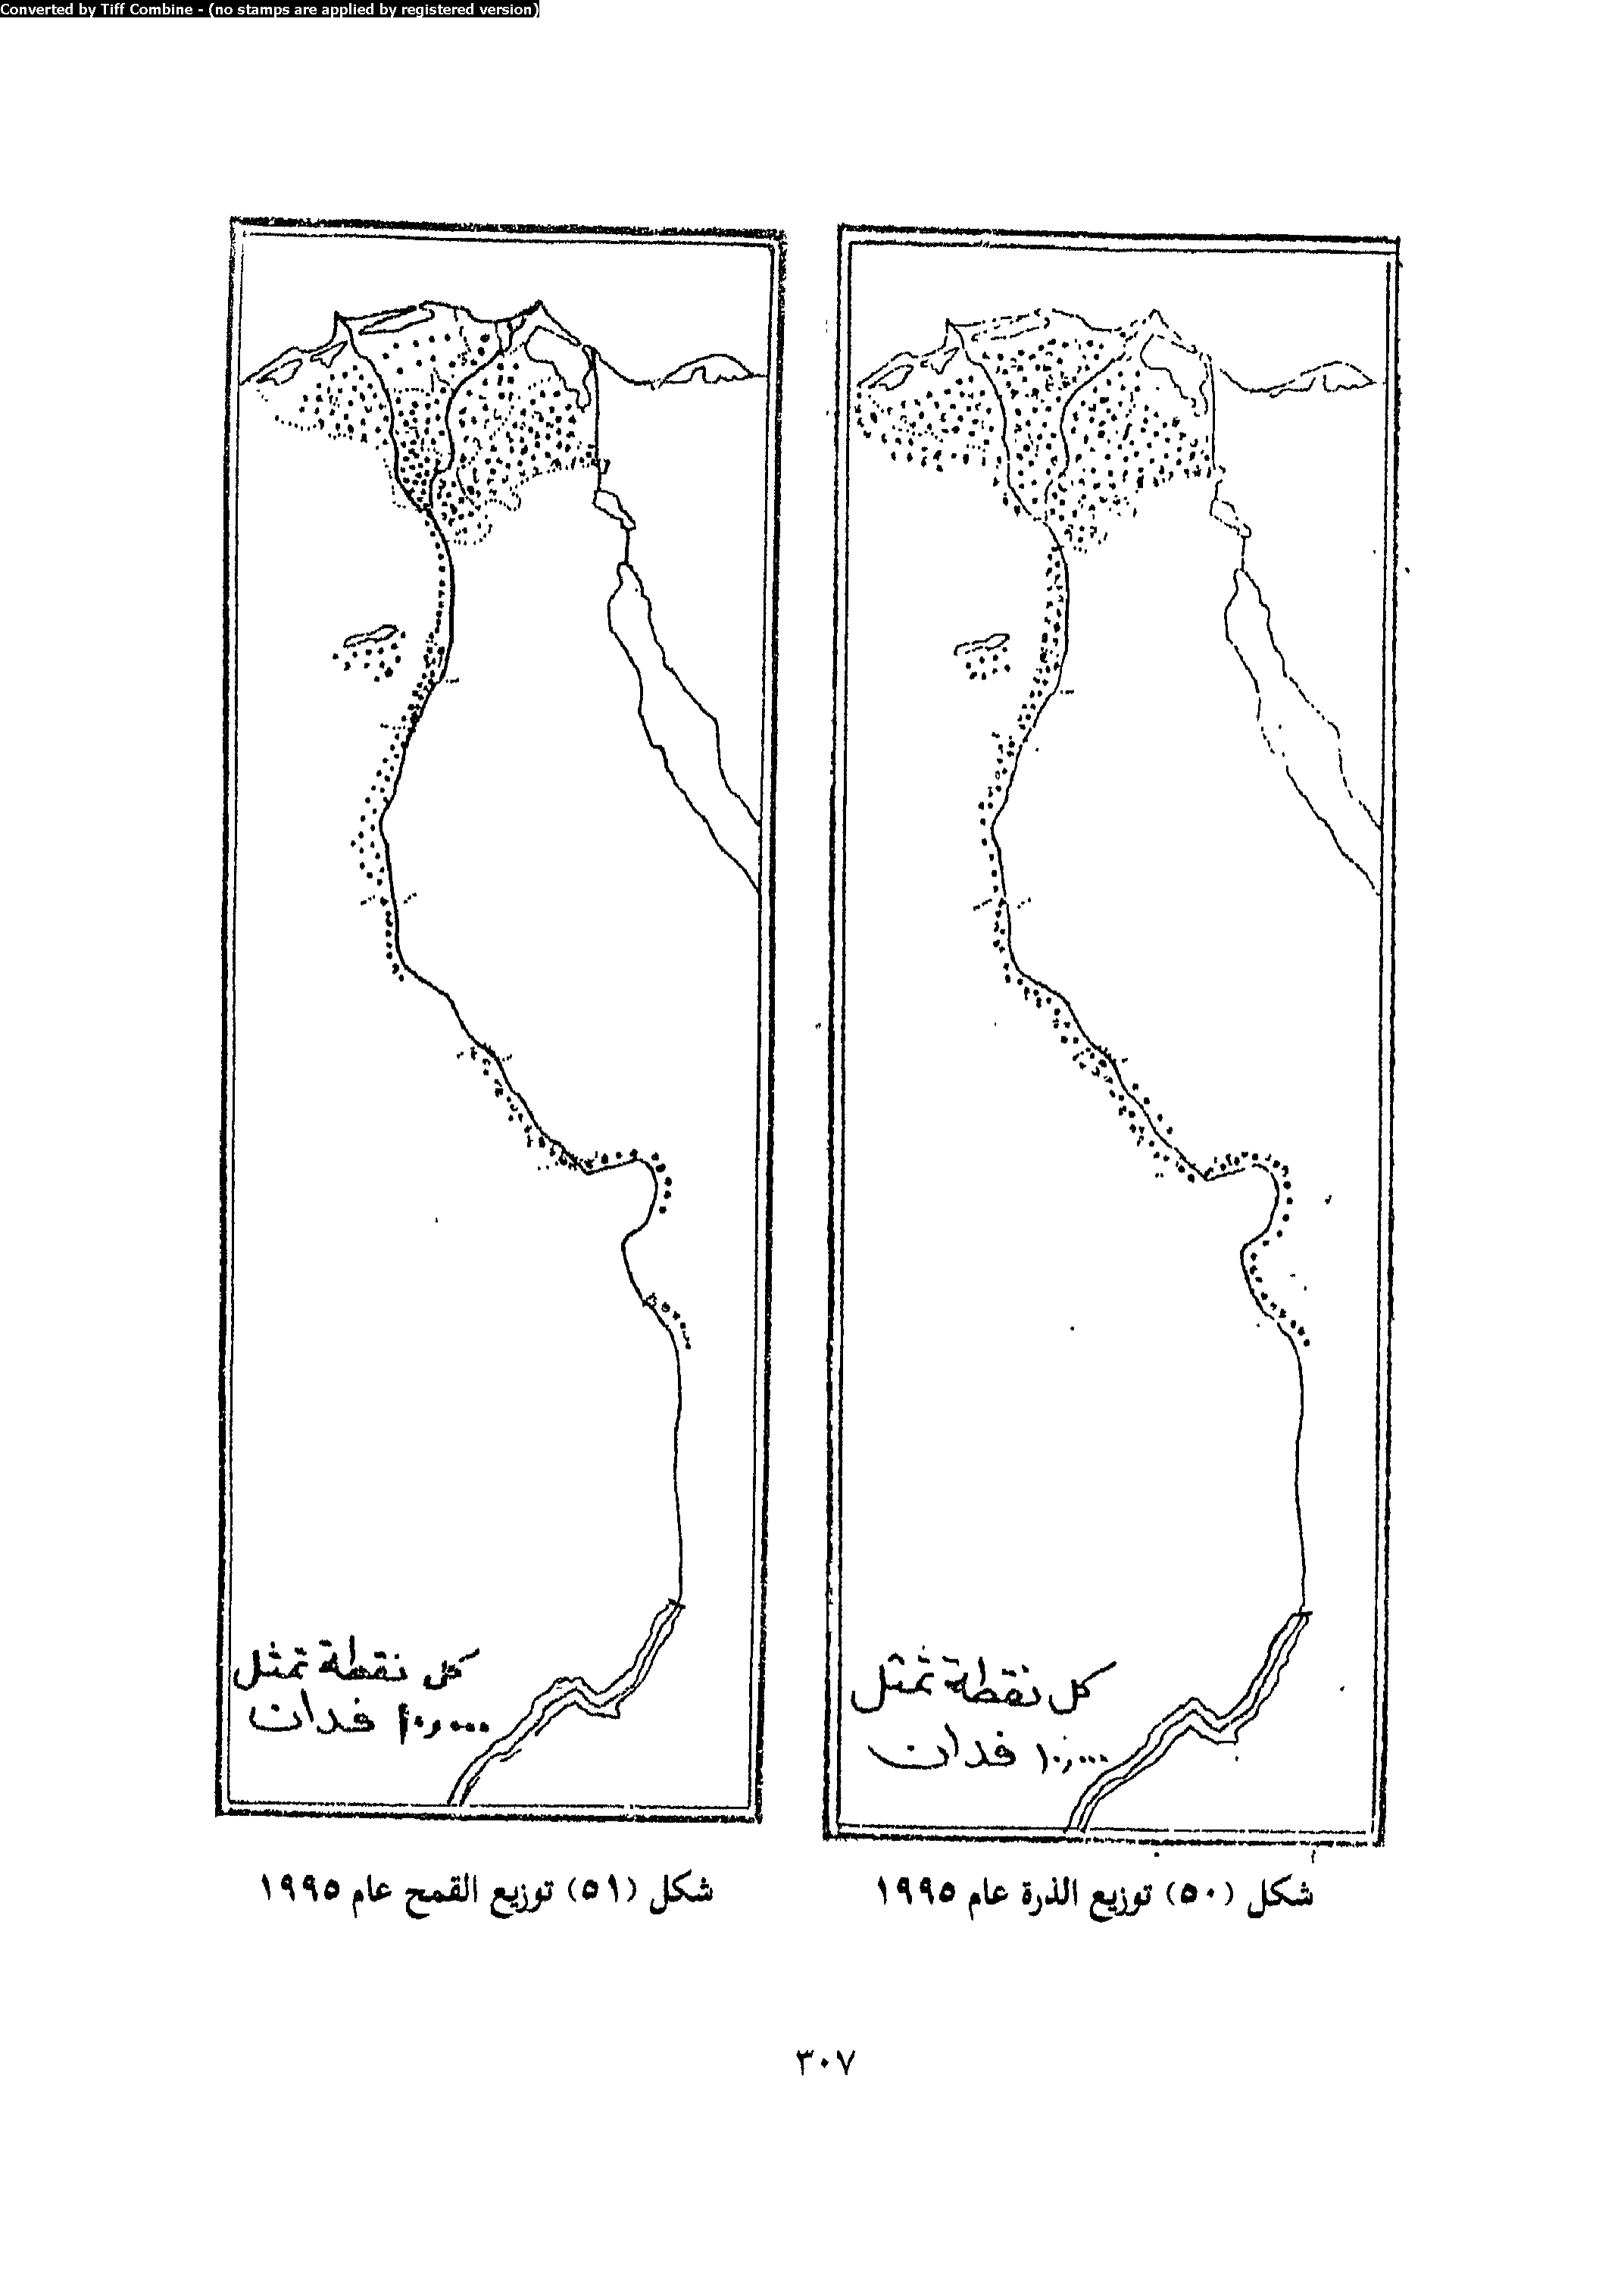 Converted by Tiff Combine - (no stamps are applied by registered version)
كل نقطة تمثل
١٠,٠٠٠ فدان
شكل (٥٠) توزيع الذرة عام ١٩٩٥
كل نقطة تمثل
١٠,٠٠٠ فدان
شكل (٥١) توزيع القمح عام ١٩٩٥
٣٠٧